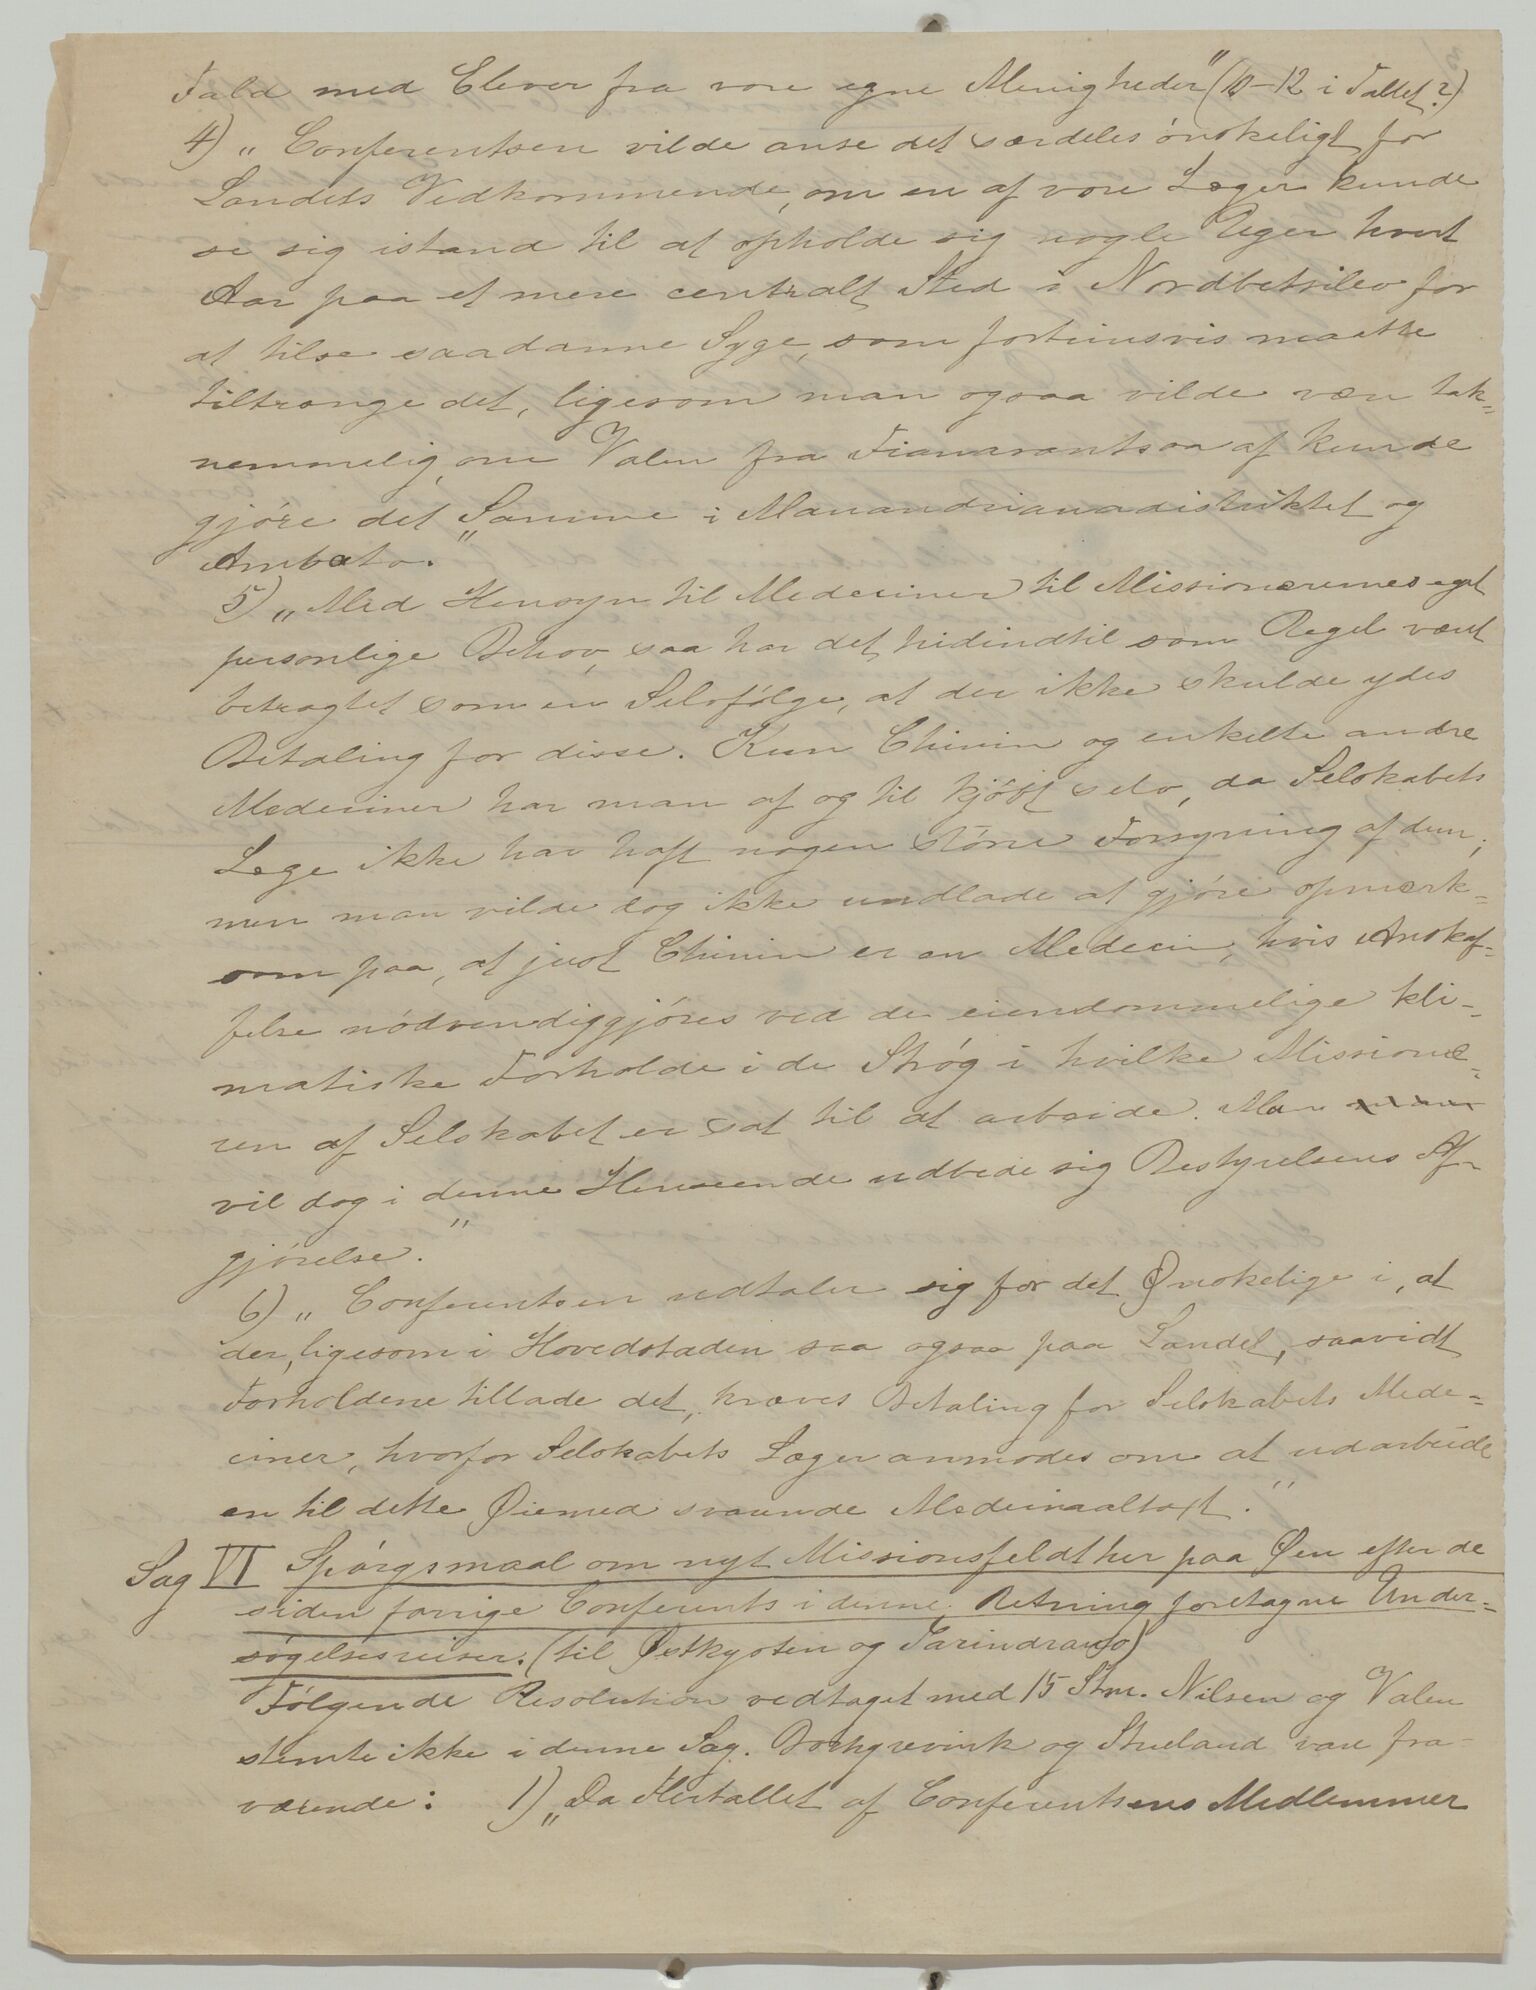 Fald med Elever fra vore egne Menigheder" (10-12 i Tallet?)
4) „Conferentsen vilde anse det særdeles ónskeligt for
Landets Vedkommende, om en af vore Læger kunde
se sig istand til at opholde sig nogle Uger hvert
Aar paa et mere centralt Sted i Nordbetsileo for
at tilse saadanne Syge, som fortrinsvis maatte
tiltrænge det, ligesom man ogsaa vilde være tak-
nemmelig, om Valen fra Fianarantsoa af kunde
gjóre det Samme i Manandrianadistriktet og
Ambato."
5) „Med Hensyn til Medeciner til Missionærernes eget
personlige Behov, saa har det hidindtil som Regel været
betragtet som en Selvfólge, at der ikke skulde ydes
Betaling for disse. Kun Chinin og enkelte andre
Medeciner har man af og til kjóbt selv, da Selskabets
Læge ikke har haft nogen stórre Forsyning af dem;
men man vilde dog ikke undlade at gjóre opmærk-
som paa, at just Chinin er en Medecin, hvis Anskaf-
felse nódvendiggjóres ved de eiendommelige kli-
matiske Forholde i de Stróg i hvilke Missionæ-
ren af Selskabet er sat til at arbeide. Man
vil dog i denne Henseende udbede sig Bestyrelsens Af-
gjórelse."
6) „Conferentsen udtaler sig for det Ønskelige i, at
der, ligesom i Hovedstaden saa ogsaa paa Landet, saavidt
Forholdene tillade det, kræves Betaling for Selskabets Mede-
ciner, hvorfor Selskabets Læger anmodes om at udarbeide
en til dette Øiemed svarende Medecinaltaxt."
Sag VI Spórgsmaal om nyt Missionsfeldt her paa Øen efter de
siden forrige Conferents i denne Retning foretagne Under-
sógelsesreiser. (til Østkysten og Tarindrano)
Fólgende Resolution vedtaget med 15 Stm. Nilsen og Valen
stemte ikke i denne Sag. Borchgrevink og Stueland vare fra-
værende: 1) „Da Flertallet af Conferentsens Medlemmer